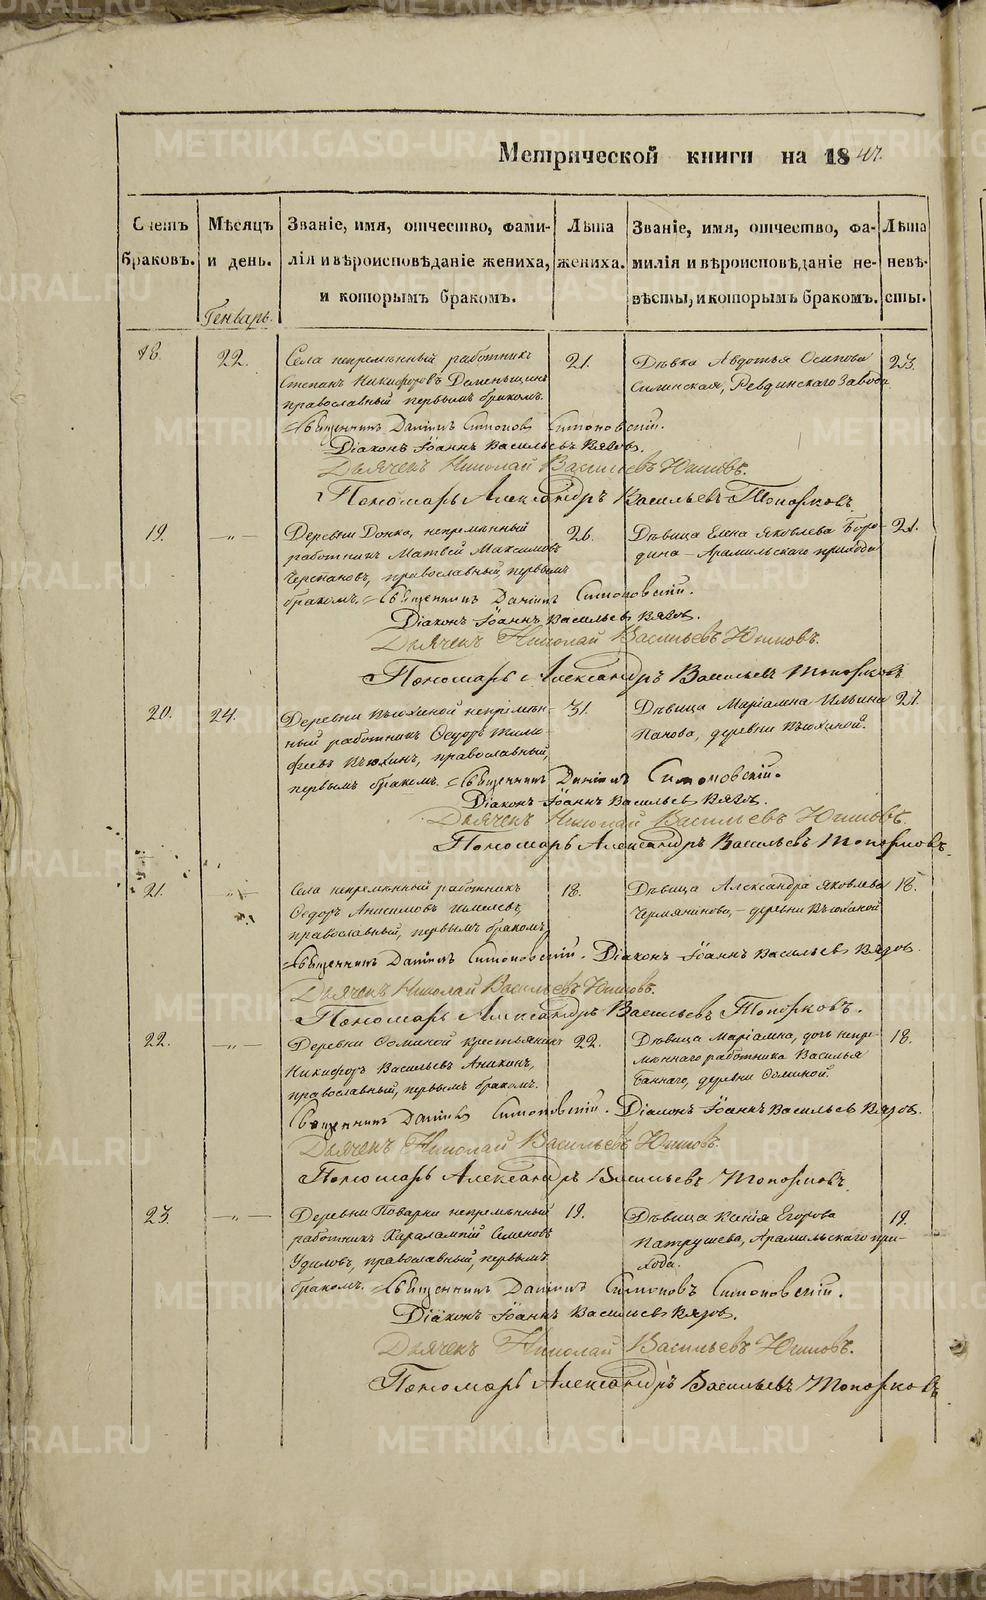 Метрической книги на 1847.
Счетъ браковъ.
Мѣсяцъ и день.
Званіе, имя, отчество, фами-
лія и вѣроисповѣданіе жениха,
и которымъ бракомъ.
Лѣта жениха.
Званіе, имя, отчество, фа-
милія и вѣроисповѣданіе не-
вѣсты, и которымъ бракомъ.
Лѣта невѣ-
сты.
Генварь.
18. 22. Села непремѣнный работникъ 21. Дѣвка Авдотья Осипова 23.
Степанъ Никифоровъ Силинская, Ревдинскаго завода
православный первымъ бракомъ.
Священникъ Даніилъ Симоновъ Симоновскій.
Діаконъ Іоаннъ Васильевъ Вязов.
Дьячекъ Николай Васильевъ Юшковъ.
Пономарь Александръ Васильевъ Топорковъ.
19. —„— Деревни непремѣнный 26. Дѣвица Елена Яковлева Боро- 21.
работникъ Матвей Максимовъ дина — Арамильскаго прихода
Черепановъ, православный, первымъ
бракомъ. Священникъ Даніилъ Симоновскій.
Діаконъ Іоаннъ Васильевъ Вязов.
Дьячекъ Николай Васильевъ Юшковъ.
Пономарь Александръ Васильевъ Топорковъ
20. 24. Деревни Вьюхиной непремѣн- 31. Дѣвица Маріамна Ильина 21.
ный работникъ Ѳедоръ Тимо- Панова, деревни Вьюхиной.
феевъ Вьюхинъ, православный,
первымъ бракомъ. Священникъ Даніилъ Симоновскій.
Діаконъ Іоаннъ Васильевъ Вязов.
Дьячекъ Николай Васильевъ Юшковъ.
Пономарь Александръ Васильевъ Топорковъ.
21. —„— Села непремѣнный работникъ 18. Дѣвица Александра Яковлева 18.
Ѳедоръ Анисимовъ Шмелевъ, Чермянинова, — деревни Вьюхиной
православный, первымъ бракомъ.
Священникъ Даніилъ Симоновскій. Діаконъ Іоаннъ Васильевъ Вязов.
Дьячекъ Николай Васильевъ Юшковъ.
Пономарь Александръ Васильевъ Топорковъ.
22. —„— Деревни Ѳоминой крестьянинъ 22. Дѣвица Маріамна, дочь непре- 18.
Никифоръ Васильевъ Аникинъ, мѣннаго работника Василья
православный, первымъ бракомъ. Баннаго, деревни Ѳоминой.
Священникъ Даніилъ Симоновскій. Діаконъ Іоаннъ Васильевъ Вязов.
Дьячекъ Николай Васильевъ Юшковъ.
Пономарь Александръ Васильевъ Топорковъ.
23. —„— Деревни Поварни непремѣнный 19. Дѣвица Ксенія Егорова 19.
работникъ Харалампій Семеновъ Патрушева, Арамильскаго при-
Удиловъ, православный, первымъ хода.
бракомъ. Священникъ Даніилъ Симоновъ Симоновскій.
Діаконъ Іоаннъ Васильевъ Вязов.
Дьячекъ Николай Васильевъ Юшковъ.
Пономарь Александръ Васильевъ Топорковъ
METRIKI.GASO-URAL.RU